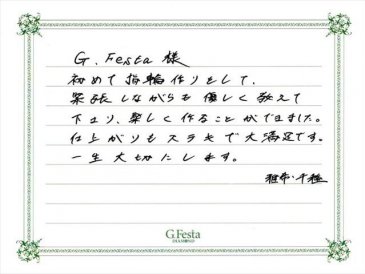 G.Festa 様
初めて指輪作りをして、
緊張しながらも優しく教えて
下さり、楽しく作ることができました。
仕上がりもステキで大満足です。
一生大切にします。
雅幸・千種
G.Festa
DIAMOND